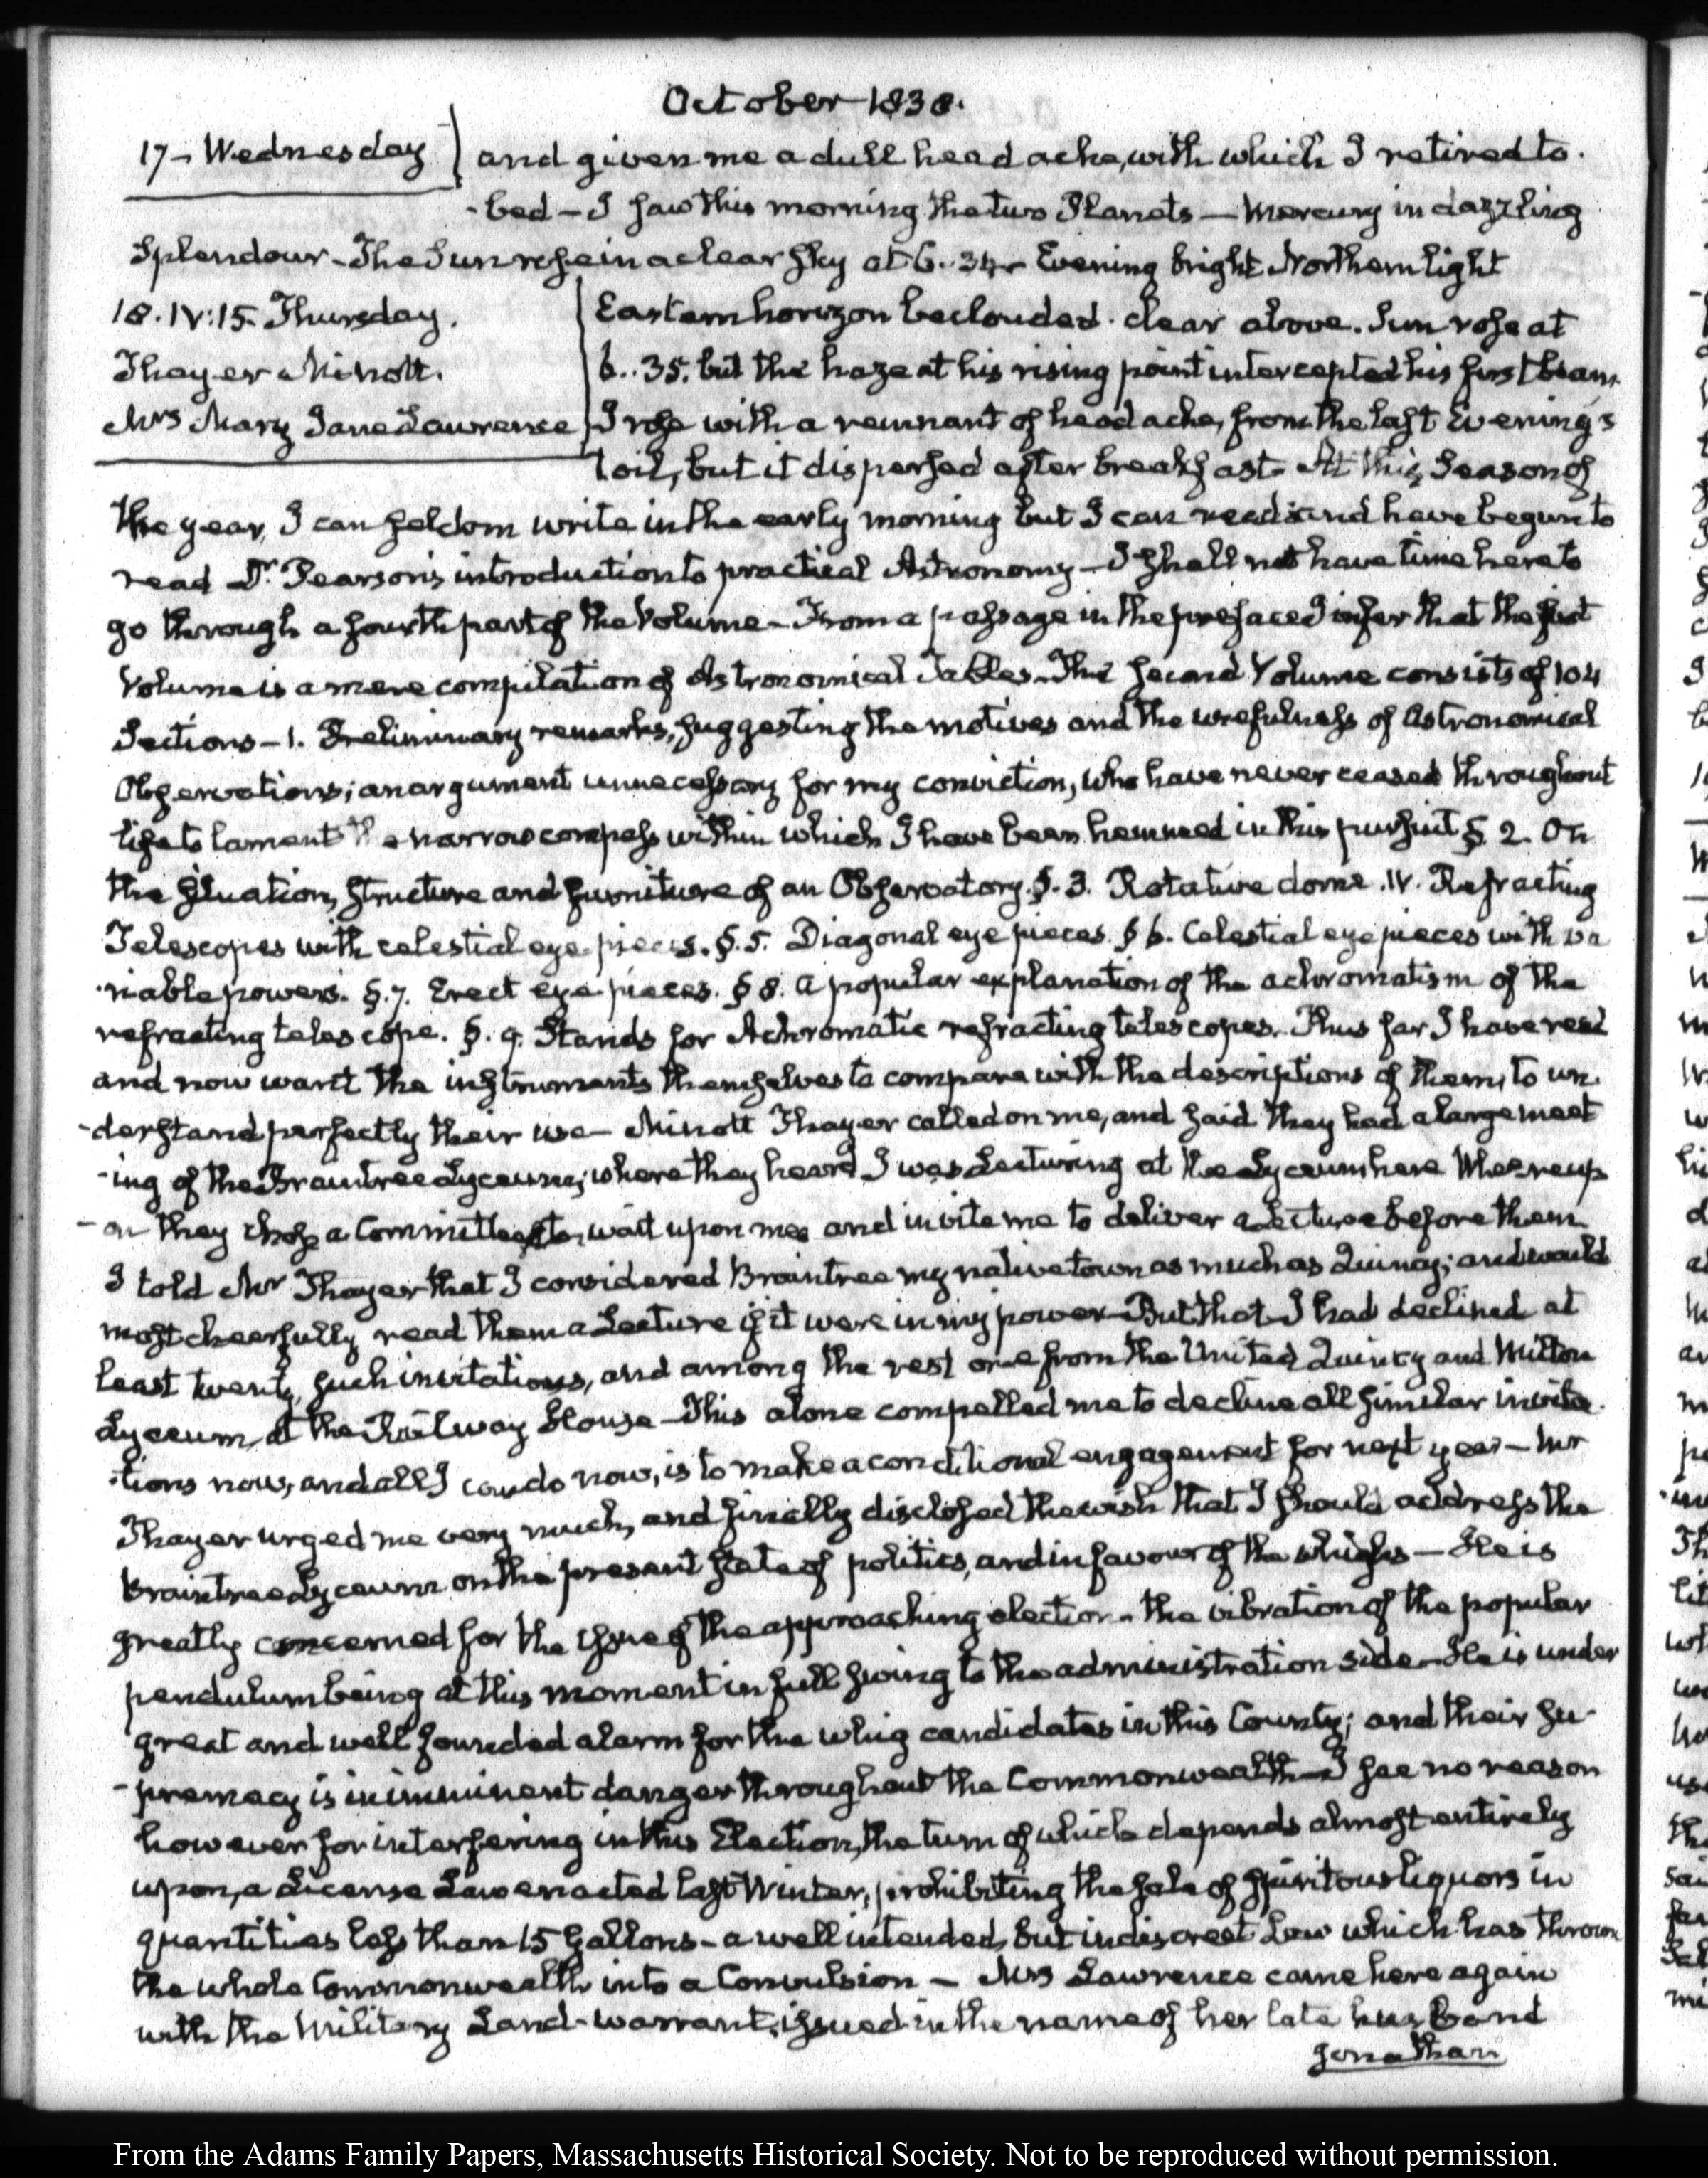 October 1838.
17- Wednesday
and given me a dull head ache, with which I retired to
-bed – I saw this morning the two Planets — Mercury in dazzling
Splendour – The Sun rose in a clear sky at 6..34– Evening bright Northern light
18. IV:15. Thursday.
Thayer Minott.
Mrs Mary Jane Lawrence
Eastern horizon beclouded. clear above. Sun rose at
6..35. but the haze at his rising point intercepted his first beam.
I rose with a remnant of head ache, from the last Evening's
toil, but it dispersed after breakfast – At this Season of
the year, I can seldom write in the early morning but I can read and have begun to
read Dr. Pearson's introduction to practical Astronomy – I shall not have time here to
go through a fourth part of the Volume – From a passage in the preface I infer that the first
Volume is a mere compilation of Astronomical Tables – The second Volume consists of 104
Sections – 1. Preliminary remarks, suggesting the motives and the usefulness of Astronomical
Observations; an argument unnecessary for my conviction, who have never ceased throughout
life to lament the narrow compass within which I have been hemmed in this pursuit § 2. On
the situation, structure and furniture of an Observatory. §. 3. Rotative dome. IV. Refracting
Telescopes with celestial eye-pieces. §. 5. Diagonal eye pieces. § 6. Celestial eye pieces with va
-riable powers. §. 7. Erect eye-pieces. § 8. A popular explanation of the achromatism of the
refracting telescope. §. 9. Stands for Achromatic refracting telescopes. Thus far I have read
and now want the instruments themselves to compare with the descriptions of them, to un
-derstand perfectly their use – Minott Thayer called on me, and said they had a large meet
-ing of the Braintree Lyceum; where they heard I was Lecturing at the Lyceum here Whereup
-on they chose a Committee to wait upon me and invite me to deliver a Lecture before them
I told Mr Thayer that I considered Braintree my native town as much as Quincy; and would
most cheerfully read them a Lecture if it were in my power – But that I had declined at
least twenty such invitations, and among the rest one from the United Quincy and Milton
Lyceum, at the Railway House – This alone compelled me to decline all similar invita
-tions now, and all I can do now, is to make a conditional engagement for next year – Mr
Thayer urged me very much, and finally disclosed the wish that I should address the
Braintree Lyceum on the present state of politics, and in favour of the whigs — He is
greatly concerned for the issue of the approaching election – the vibration of the popular
pendulum being at this moment in full swing to the administration side – He is under
great and well founded alarm for the whig candidates in this County; and their su-
-premacy is in imminent danger throughout the Commonwealth – I see no reason
however for interfering in this Election, the turn of which depends almost entirely
upon, a License Law enacted last Winter, prohibiting the sale of spiritous liquors in
quantities less than 15 Gallons – a well intended, but indiscreet Law which has thrown
the whole Commonwealth into a Convulsion – Mrs Lawrence came here again
with the Military Land-warrant, issued in the name of her late husband
Jonathan
From the Adams Family Papers, Massachusetts Historical Society. Not to be reproduced without permission.